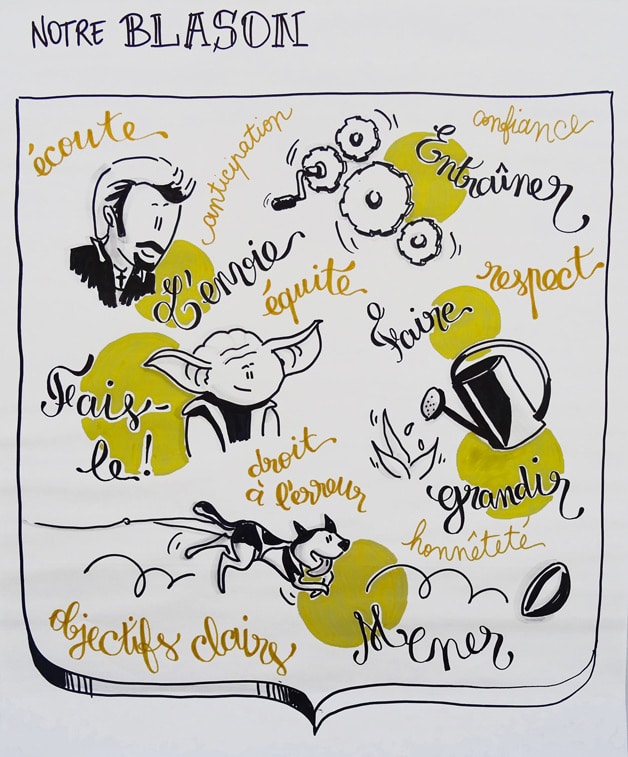 NOTRE BLASON
écoute
anticipation
confiance
Entraîner
L'envie
équité
respect
Faire
Fais-
le !
grandir
droit
à l'erreur
honnêteté
objectifs clairs
Mener